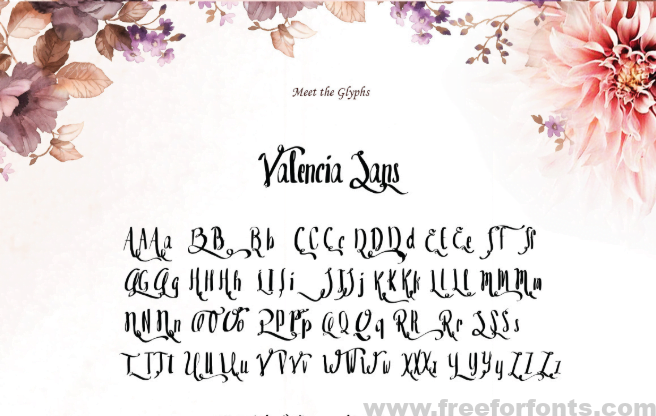 Meet the Glyphs
Valencia Sans
AAAa BBBb CCCc DDDd EEEe FFf
GGGg HHHh IIIi JJJj KKKk LLLl MMMm
NNNn OOOo PPPp QQQq RRRr SSSs
TTTt UUUu VVVv WWWw XXXx YYYy ZZZz
www.freeforfonts.com